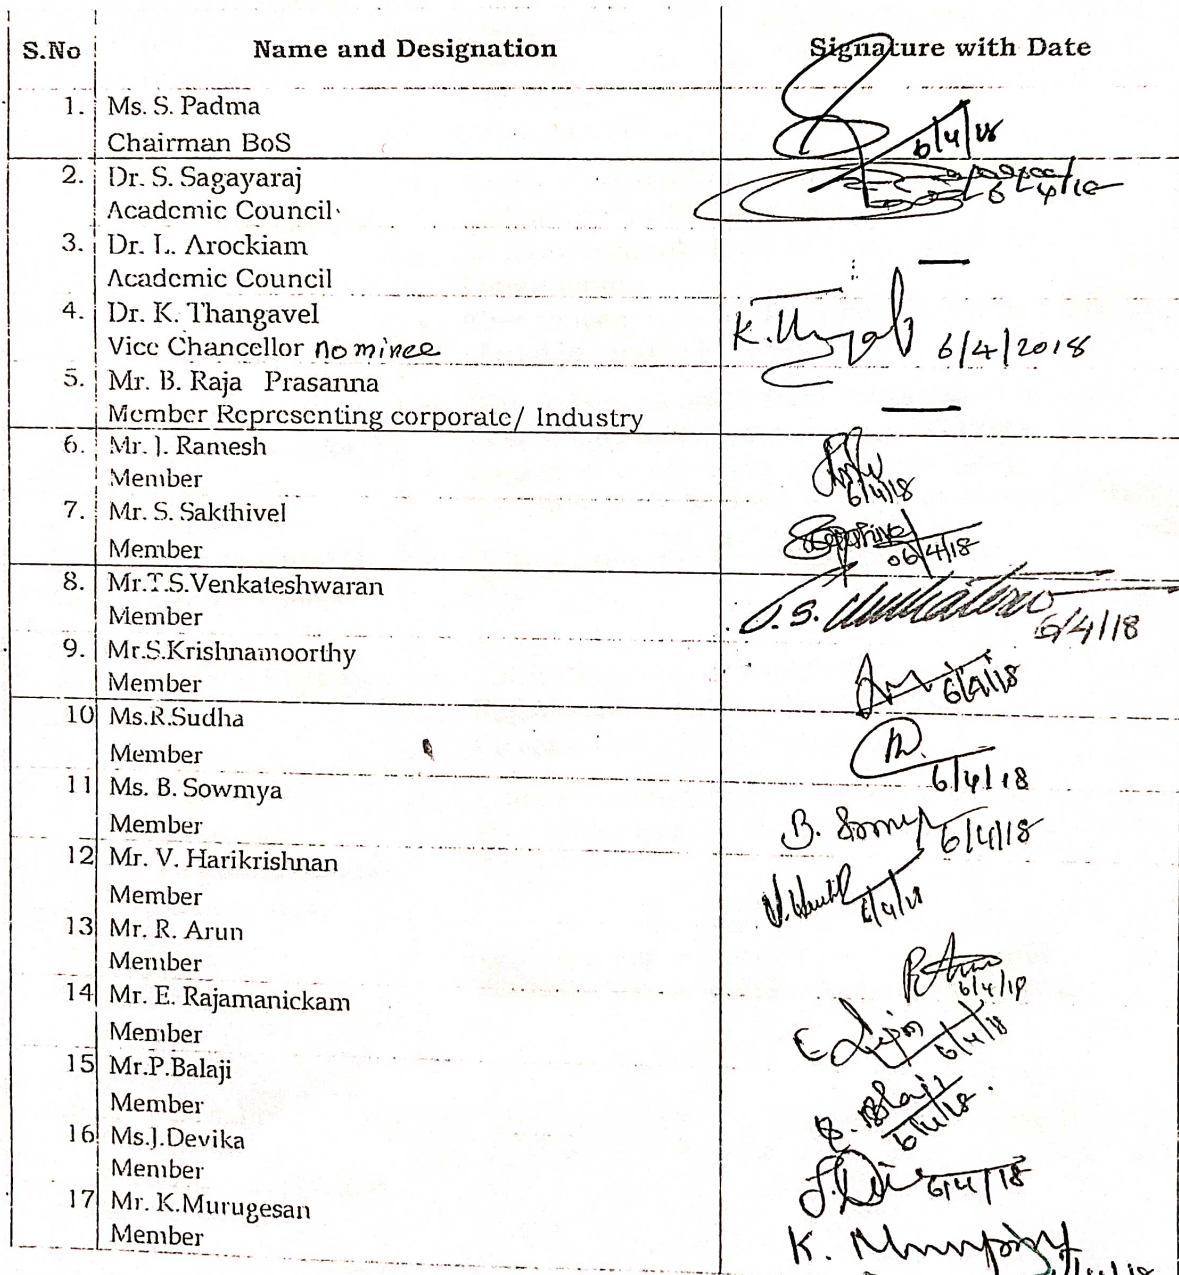 S.No Name and Designation Signature with Date
1. Ms. S. Padma
Chairman BoS 6/4/18
2. Dr. S. Sagayaraj 6/4/18
Academic Council
3. Dr. L. Arockiam —
Academic Council
4. Dr. K. Thangavel K.
Vice Chancellor nominee 6/4/2018
5. Mr. B. Raja Prasanna
Member Representing corporate/ Industry —
6. Mr. J. Ramesh
Member 6/4/18
7. Mr. S. Sakthivel
Member 06/4/18
8. Mr.T.S.Venkateshwaran
Member T.S. 6/4/18
9. Mr.S.Krishnamoorthy
Member 6/4/18
10 Ms.R.Sudha
Member 6/4/18
11 Ms. B. Sowmya
Member B. Sowmya 6/4/18
12 Mr. V. Harikrishnan
Member V. 6/4/18
13 Mr. R. Arun
Member R. Arun 6/4/18
14 Mr. E. Rajamanickam
Member E 6/4/18
15 Mr.P.Balaji
Member P. Balaji 6/4/18
16 Ms.J.Devika
Member J. 6/4/18
17 Mr. K.Murugesan
Member K.